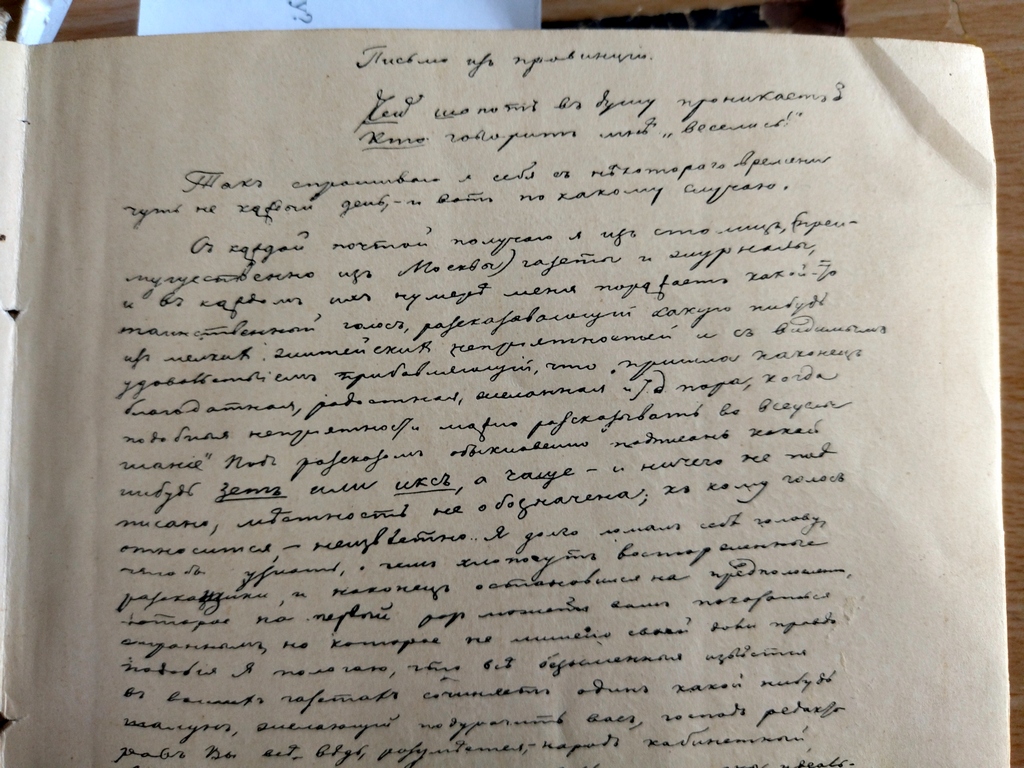 Письмо изъ провинціи.
Чей шопотъ въ душу проникаетъ?
Кто говоритъ мнѣ „веселись!"
Такъ спрашиваю я себя съ нѣкотораго времени
чуть не каждый день, – и вотъ по какому случаю.
Съ каждой почтой получаю я изъ столицъ, (преи-
мущественно изъ Москвы) газеты и журналы,
и въ каждомъ ихъ нумерѣ меня поражаетъ какой-то
таинственный голосъ, разсказывающій какую нибудь
изъ мелкихъ житейскихъ непріятностей и съ видимымъ
удовольствіемъ прибавляющій, что „пришла наконецъ
благодатная, радостная, желанная и т д пора, когда
подобныя непріятности можно разсказывать во всеуслы
шаніе" Подъ разсказомъ обыкновенно подписанъ какой
нибудь зетъ или иксъ, а чаще – и ничего не под
писано, мѣстность не обозначена; къ кому голосъ
относится – неизвѣстно. Я долго ломалъ себѣ голову,
чтобы узнать, о чемъ хлопочутъ восторженные
разскащики, и наконецъ остановился на предположеніи,
которое на первый разъ можетъ вамъ показаться
страннымъ, но которое не лишено своей доли правдо
подобія Я полагаю, что всѣ безыменныя извѣстія
въ вашихъ газетахъ сочиняетъ одинъ какой нибудь
шалунъ, желающій подурачить васъ, господъ редакто
ровъ Вы всѣ, вѣдь, разумѣется, – народъ кабинетный,